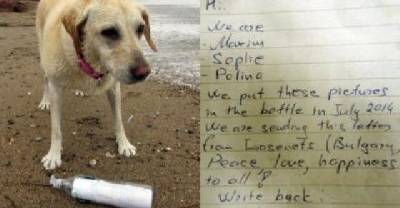 Hi.
We are
- Maxim
Sophie
- Polina
We put these pictures
in the bottle in July 2014
We are sending this letter
from Losenets (Bulgary)
Peace, love, happiness
to all!
Write back.